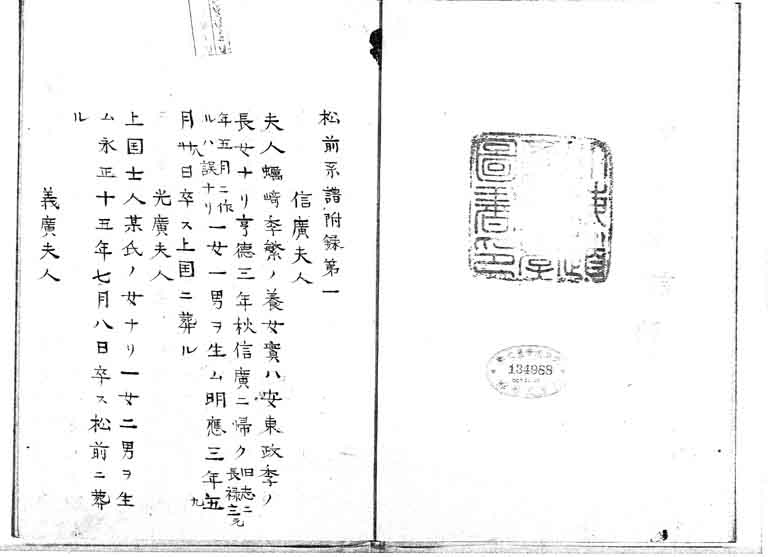 松前系譜附録第一
信廣夫人
夫人蠣﨑季繁ノ養女實ハ安東政季ノ
長女ナリ亨德三年秋信廣ニ帰ク旧志ニ長禄三元
年五月ニ作ルハ誤ナリ一女一男ヲ生ム明應三年五九
月廿八日卒ス上国ニ葬ル
光廣夫人
上国士人某氏ノ女ナリ一女二男ヲ生
ム永正十五年七月八日卒ス松前ニ葬
ル
義廣夫人
圖書
134988